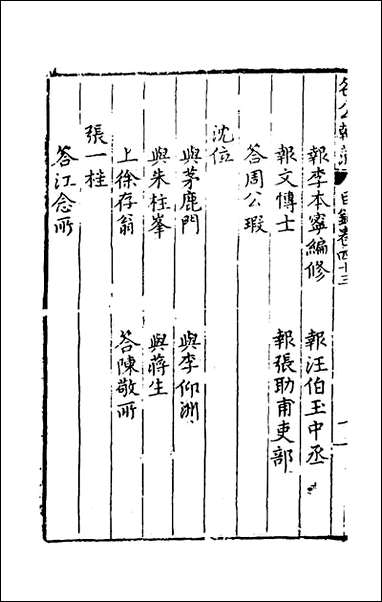 目錄卷四十三
報李本寧編修　報汪伯玉中丞
報文博士　報張助甫吏部
答周公瑕
沈位
與茅鹿門　與李仰洲
與朱柱峯　與蔣生
上徐存翁　答陳敬所
張一桂
答江念所